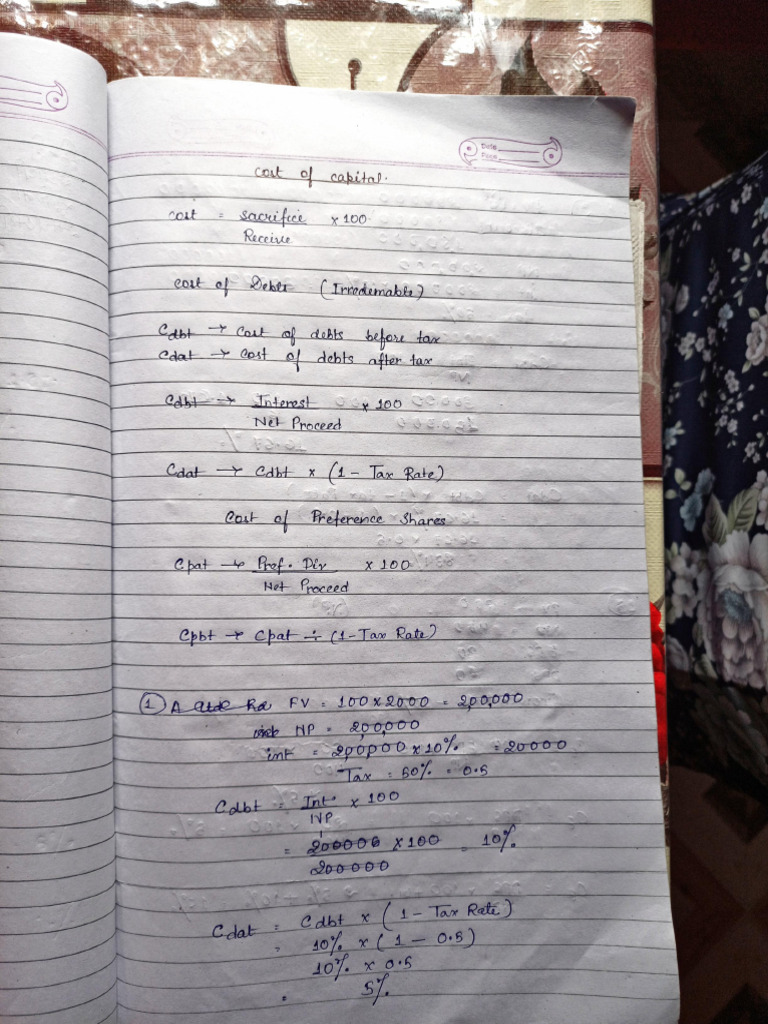 Date
Page
Cost of capital.
cost = sacrifice × 100
Receive
cost of Debts (Irredemable)
Cdbt → Cost of debts before tax
Cdat → Cost of debts after tax
Cdbt → Interest × 100
Net Proceed
Cdat → Cdbt × (1 - Tax Rate)
Cost of Preference Shares
Cpat → Pref. Div × 100
Net Proceed
Cpbt → Cpat ÷ (1-Tax Rate)
① A FV = 100 × 2000 = 2,00,000
NP = 200,000
int = 2,00,000 × 10% = 20000
Tax = 50% = 0.5
Cdbt = Int. × 100
NP
= 200000 × 100 = 10%
200000
Cdat = Cdbt × (1 - Tax Rate)
= 10% × (1 - 0.5)
10% × 0.5
= 5%